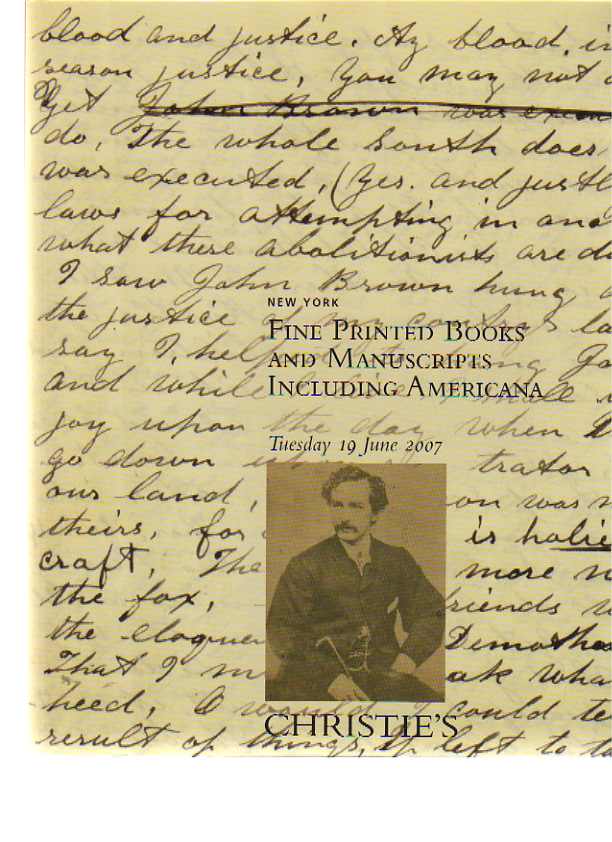 blood and justice. Ay blood, in
reason justice, You may not
Yet John Brown was exe
do, The whole South does
was executed, (Yes. and justl
laws for attempting in ano
what these abolitionists are do
I saw John Brown hung
NEW YORK
the justice of my country's la
FINE PRINTED BOOKS
say I, help hung Jo
AND MANUSCRIPTS
and while I live, I shall
INCLUDING AMERICANA
joy upon the day when
Tuesday 19 June 2007
go down trator
our land, on was
theirs, for is holie
craft, The more
the fox, friends
the eloquen Demosthe
That I m ak wha
heed, O would I could te
CHRISTIE'S
result of things, If left to